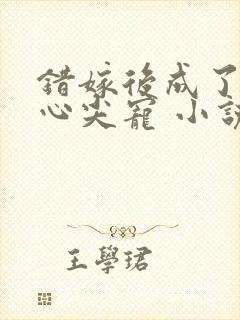 錯嫁後成了
心尖寵 小說
王學珺